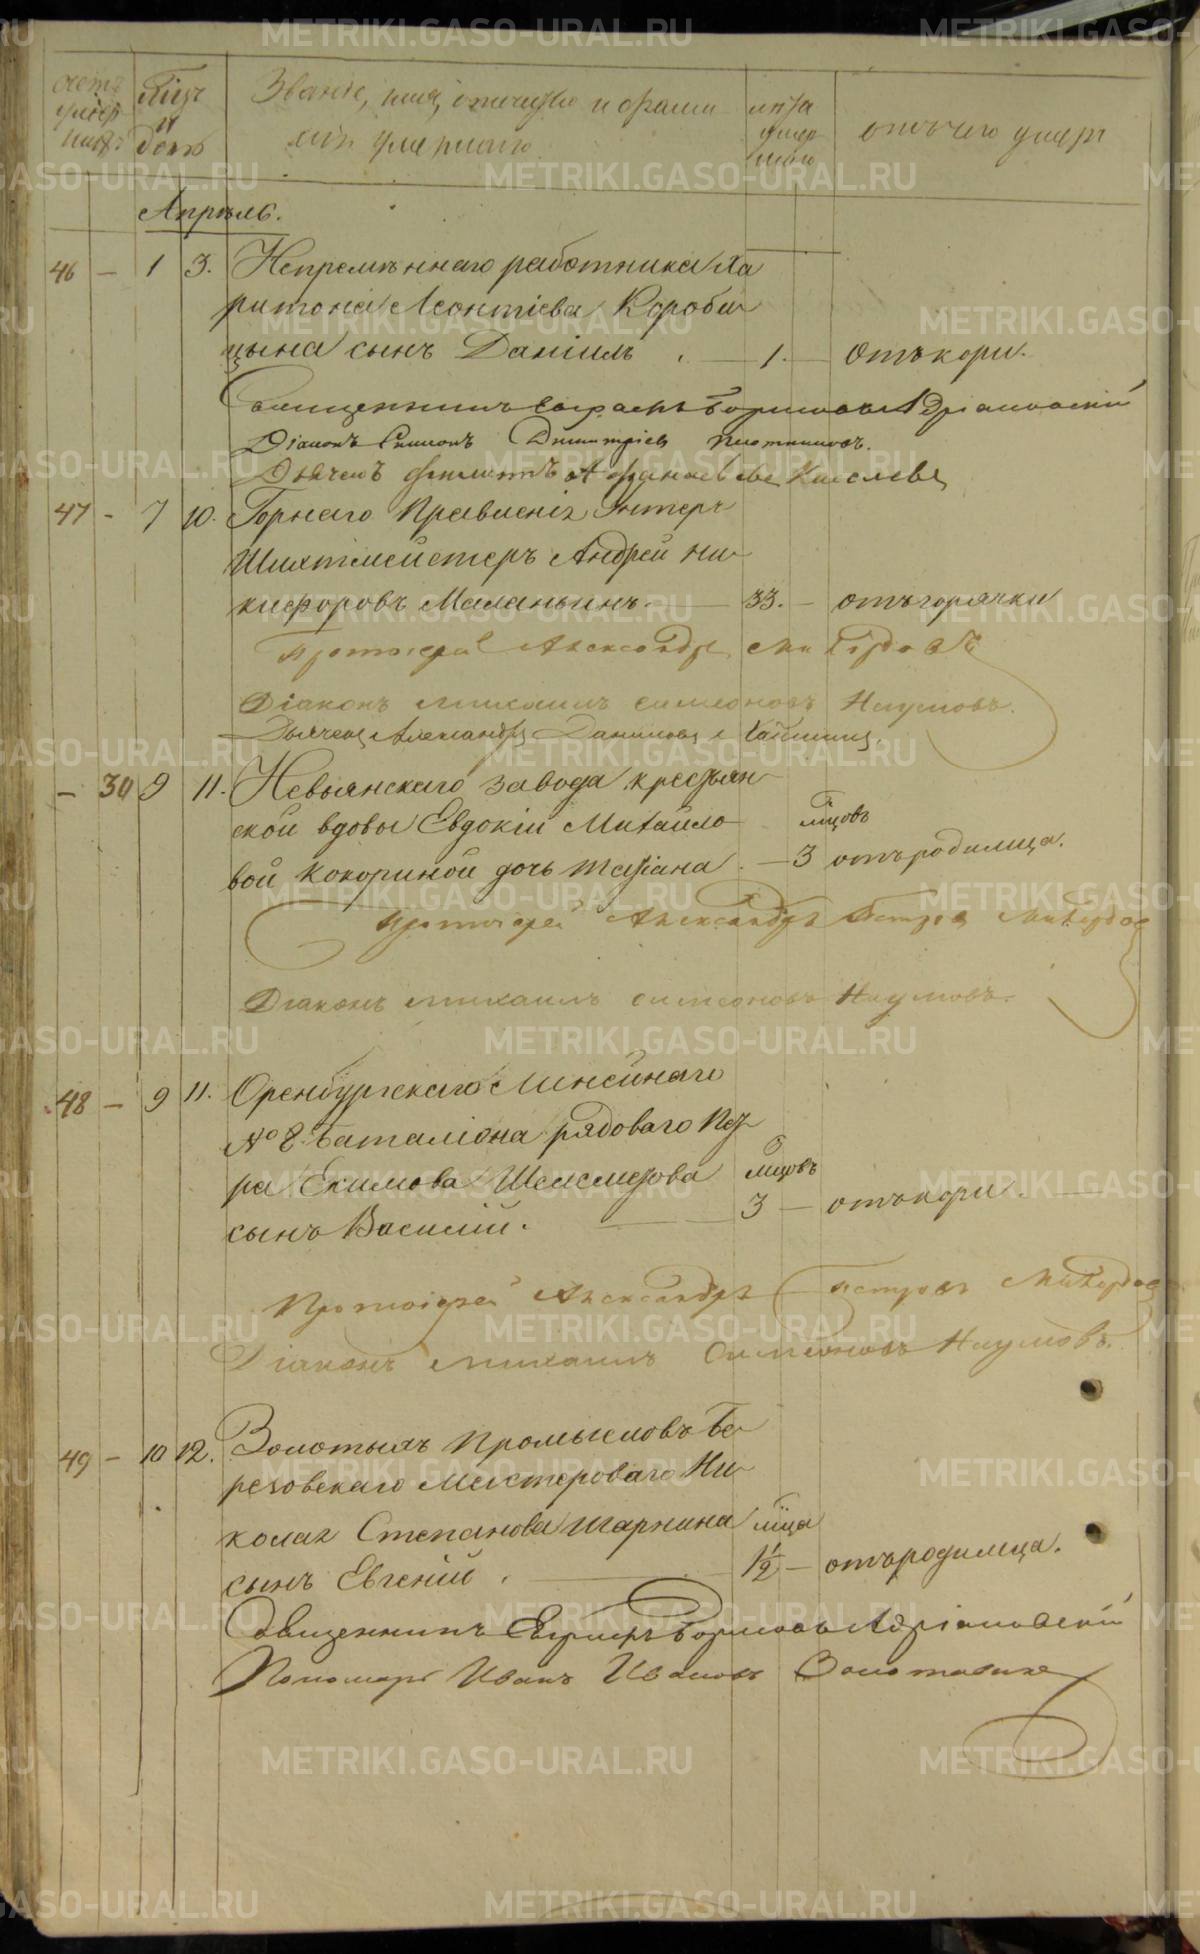 счетъ умер шихъ
Мцъ и день
Званіе, имя, отчество и фами
лія умершаго
лѣта умер шаго
отъ чего умеръ
Апрѣль.
46 — 1 3. Непремѣннаго работника Ха
ритона Леонтіева Короби
цына сынъ Даніилъ . — 1. — Отъ кори.
Священникъ Борисовъ Адріановскій
Діаконъ Симонъ Димитріевъ Плотниковъ.
Дьячекъ Филиппъ Афанасьевъ Киселевъ
47 - 7 10. Горнаго Правленія Унтеръ
Шихтмейстеръ Андрей Ни
кифоровъ Маланьинъ. — 33. — отъ горячки
Протоіерей Александръ Милордовъ
Діаконъ Михаилъ Симеоновъ Наумовъ.
Дьячекъ Александръ Даниловъ
— 30 9 11. Невьянскаго завода крестьян
ской вдовы Евдокіи Михайло
вой Кокориной дочь Татіана . — 3 мцовъ отъ родимца.
Протоіерей Александръ Петровъ Милордовъ
Діаконъ Михаилъ Симеоновъ Наумовъ.
48 — 9 11. Оренбургскаго Линейнаго
№ 8 Баталіона рядоваго Пет
ра Екимова Шелеметова мцовъ
сынъ Василій. — 3 — отъ кори.
Протоіерей Александръ Петровъ Милордовъ
Діаконъ Михаилъ Симеоновъ Наумовъ.
49 — 10 12. Золотыхъ Промысловъ Бе
резовскаго Мастероваго Ни
колая Степанова Шарнина мца
сынъ Евгеній . — 1½ — отъ родимца.
Священникъ Евфимъ Борисовъ Адріановскій
Пономарь Иванъ Ивановъ Золотавинъ
METRIKI.GASO-URAL.RU